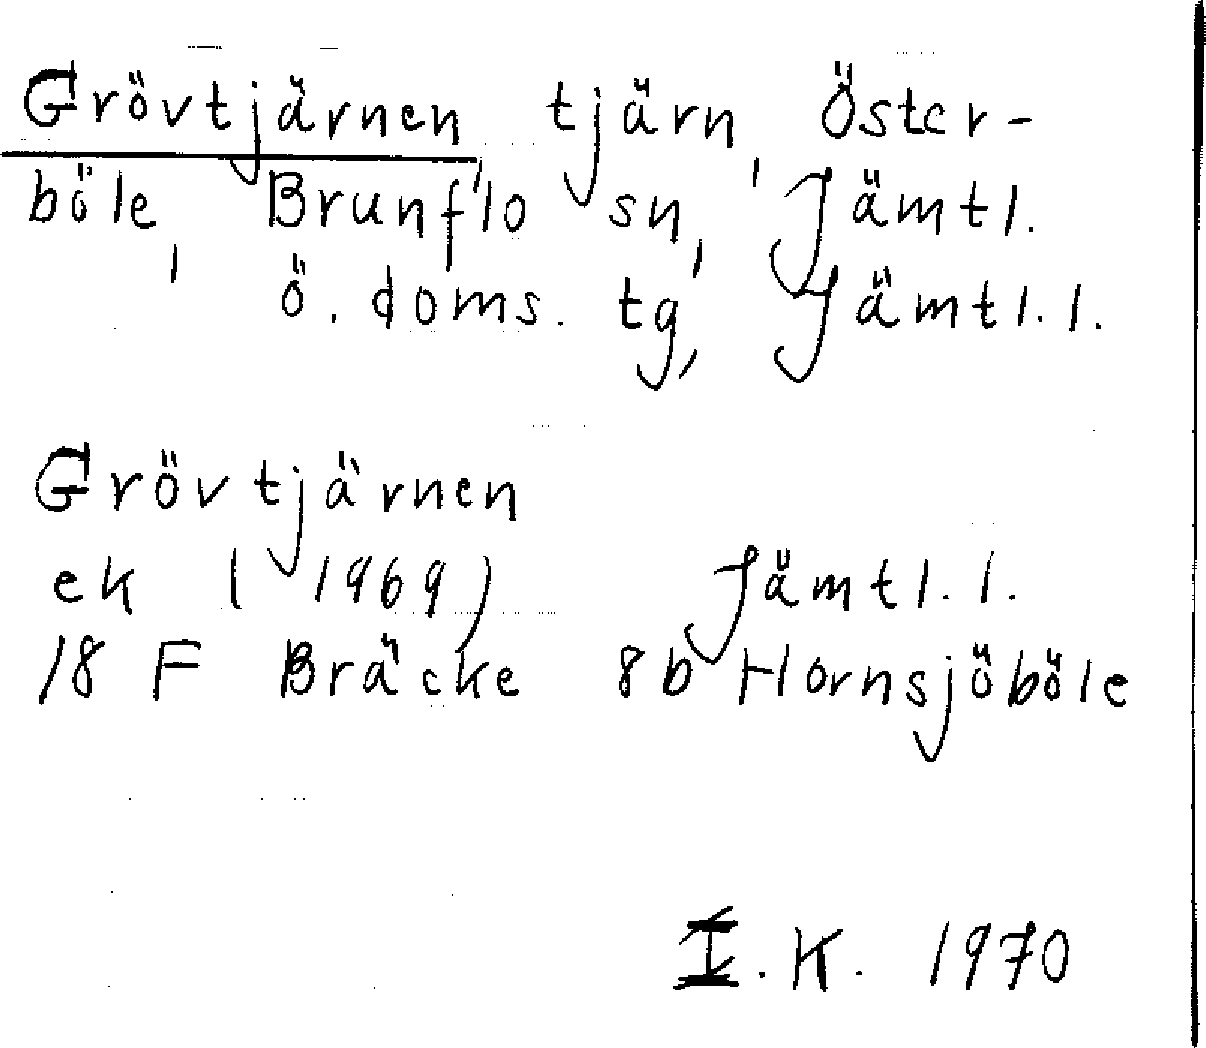 Grövtjärnen, tjärn, Öster-
böle, Brunflo sn, Jämtl.
ö. doms. tg, Jämtl. l.
Grövtjärnen
ek (1969) Jämtl. l.
18 F Bräcke 8b Hornsjöböle
I. K. 1970